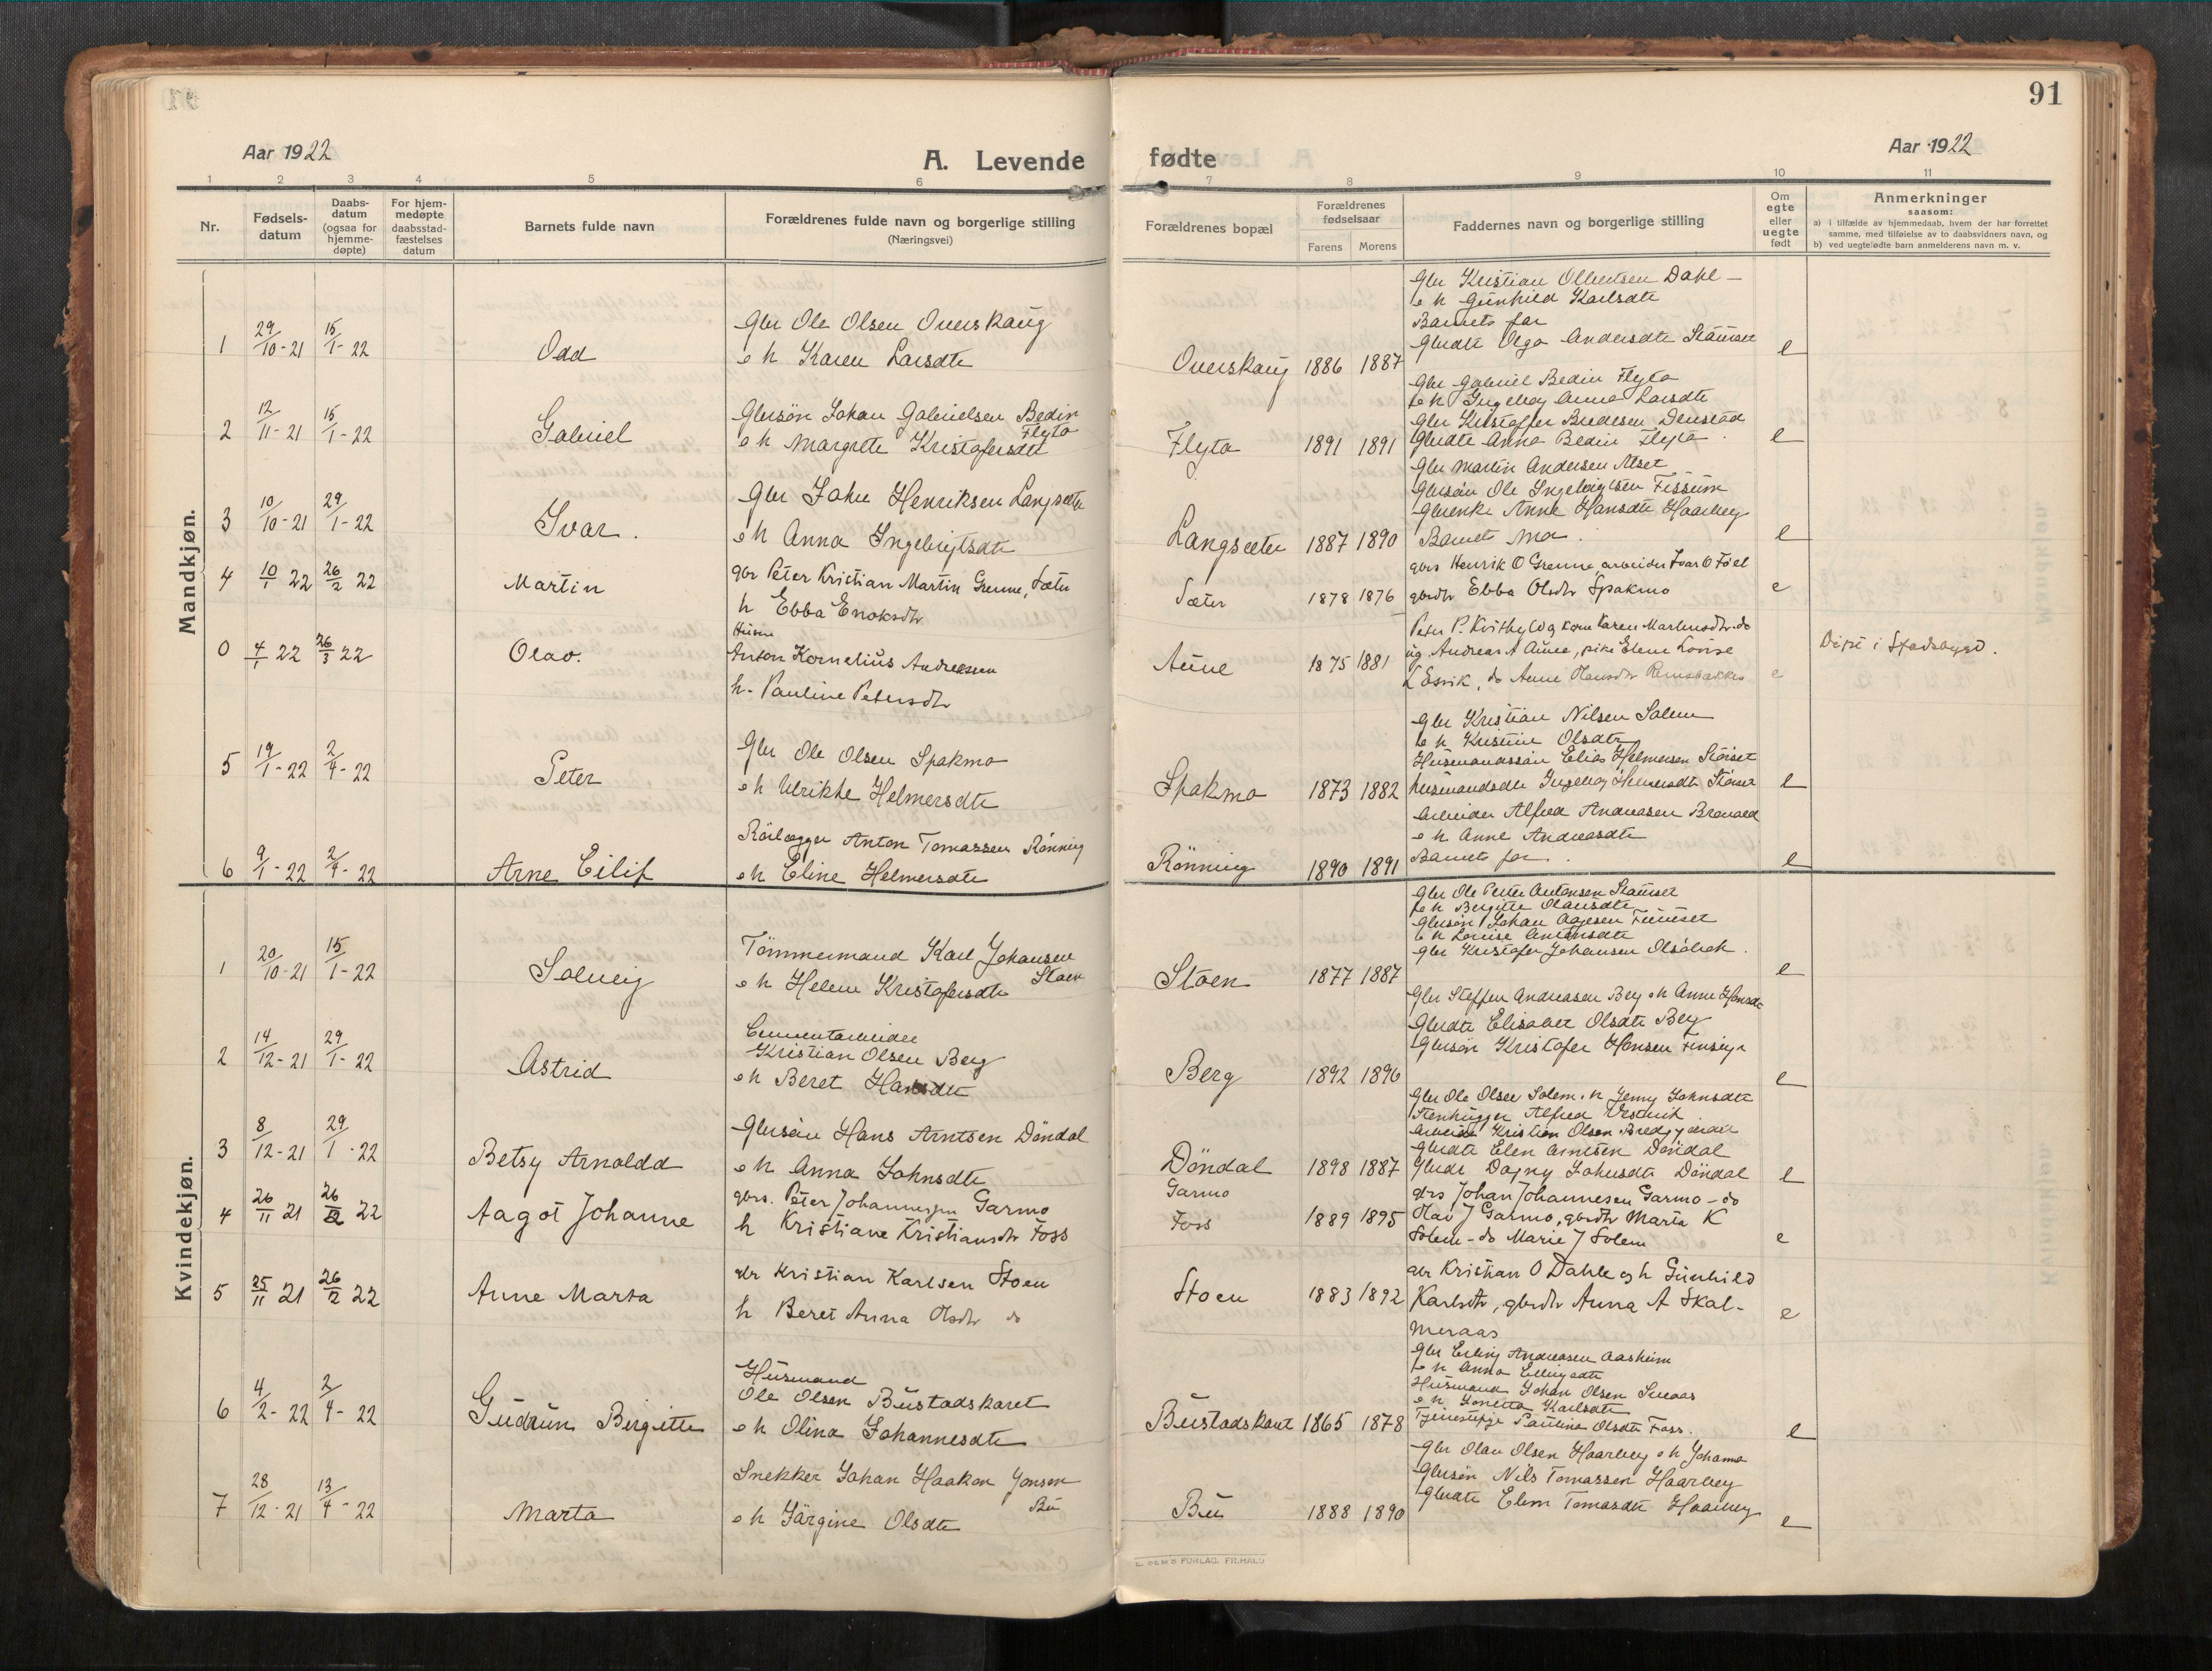 91
Aar 1922
A. Levende fødte
Aar 1922
1 2 3 4 5 6 7 8 9 10 11
Nr.
Fødsels-
datum
Daabs-
datum
(ogsaa for
hjemme-
døpte)
For hjem-
medøpte
daabsstad-
fæstelses
datum
Barnets fulde navn
Forældrenes fulde navn og borgerlige stilling
(Næringsvei)
Forældrenes bopæl
Forældrenes
fødselsaar
Farens Morens
Faddernes navn og borgerlige stilling
Om
egte
eller
uegte
født
Anmerkninger
saasom:
a) i tilfælde av hjemmedaab, hvem der har forrettet
samme, med tilføielse av to daabsvidners navn, og
b) ved uegtefødte barn anmelderens navn m. v.
Mandkjøn.
1 29/10-21 15/1-22 Odd
Gbr Ole Olsen Overskaug
o h Karen Larsdtr
Overskaug 1886 1887
Gbr Kristian Olbertsen Dahl -
o h Gunhild Karlsdtr
Barnets far
Gbrdtr Olga Andersdtr
e
2 12/11-21 15/1-22 Gabriel
Gbrsøn Johan Gabrielsen Bedin
Flyta
o h Margrete Kristofersdtr
Flyta 1891 1891
Gbr Gabriel Bedin Flyta
o h Ingebog Anna Larsdtr
Gbr Kristoffer Denstad
Gbrdtr Anna Bedin Flyta
e
3 10/10-21 29/1-22 Ivar.
Gbr John Henriksen Langsæter
o h Anna Ingebrigtsdtr
Langsæter 1887 1890
Gbr Martin Andersen
Gbrsøn Ole Ingebrigtsen Fissum
Gbrenke Anne Hansdtr Haarberg
Barnets Mor.
e
4 10/1 22 26/2 22 Martin
gbr Peter Kristian Martin Grenne, Sæter
h Ebba Enoksdtr
Sæter 1878 1876
gbrs Henrik O Grenne, arbeider Ivar O Føel
gbrdtr Ebba Olsdtr Spakmo
e
0 4/1 22 26/3 22 Olav.
Husm
Anton Kornelius Andreassen
h. Pauline Petersdtr
Aune 1875 1881
Peter P. Kvithyld og kone Karen Martensdtr. do
ug. Andreas A Aune, pike Elene Lovise
L Esvik, do Anne Hansdtr
e
Døpt i Stadsbygd.
5 19/1-22 2/4-22 Peter
Gbr Ole Olsen Spakmo
o h Ulrikke Helmersdtr
Spakmo 1873 1882
Gbr Kristian Nilsen Solem
o h Kristine Olsdtr
Husmandssøn Elias Helmersen Størset
husmandsdtr Ingebog Helmersdtr Størset
e
6 9/1-22 2/4-22 Arne Eilif
Rörlægger Anton Tomassen Rönning
o h Eline Helmersdtr
Rönning 1890 1891
Arbeider Alfred Andreasen
o h Anne Andreasdtr
Barnets far.
e
Kvindekjøn.
1 20/10-21 15/1-22 Solveig
Tömmermand Karl Johansen
Stoen
o h Helene Kristofersdtr
Stoen 1877 1887
Gbr Ole Peter Antonsen
o h Bergitte Olausdtr
Gbrsøn Johan Aagesen
o h Lovise Antonsdtr
gbr Kristofer Johansen Olsøbak.
e
2 14/12-21 29/1-22 Astrid
Cementarbeider
Kristian Olsen Berg
o h Beret Hansdtr
Berg 1892 1896
Gbr Steffen Andreasen Berg o h Anne Hansdtr
Gbrdtr Elisabet Olsdtr Berg
Gbrsøn Kristofer Hansen
e
3 8/12-21 29/1-22 Betsy Arnolda
Gbrsøn Hans Arntsen Döndal
o h Anna Johnsdtr
Döndal 1898 1887
Gbr Ole Olsen Solem o h Jenny Johnsdtr
Stenhugger Alfred Vestvik
Arbeider Kristian Olsen
Gbrdtr Elen Arntsen Döndal
Gbrdtr Dagny Johnsdtr Döndal
e
4 26/11 21 26/2 22 Aagot Johanne
gbrs. Peter Johannessen Garmo
h Kristiane Kristiansdtr Foss
Garmo
Foss 1889 1895
gbrs Johan Johannesen Garmo - do
Olav J Garmo, gbrdtr Marta K
Solem - do Marie J Solem
e
5 25/11 21 26/2 22 Anne Marta
gbr Kristian Karlsen Stoen
h Beret Anna Olsdtr do
Stoen 1883 1892
gbr Kristian O Dahle og h Gunhild
Karlsdtr, gbrdtr Anna A Skal-
meraas
e
6 4/2-22 2/4-22 Gudrun Birgitte
Husmand
Ole Olsen Bustadskaret
o h Olina Johannesdtr
Bustadskaret 1865 1878
Gbr Erling Andreasen Aasheim
o h Anna Ellingsdtr
Husmand Johan Olsen
o h Karlsdtr
Tjenestepige Pauline Olsdtr Foss.
e
7 28/12-21 13/4-22 Marta
Snekker Johan Haakon Jonsen
Bu
o h Järgine Olsdtr
Bu 1888 1890
Gbr Olav Olsen Haarberg o h Johanna
Gbrsøn Nils Tomassen Haarberg
Gbrdtr Elen Tomasdtr Haarberg
e
E. SEM'S FORLAG, FR.HALD